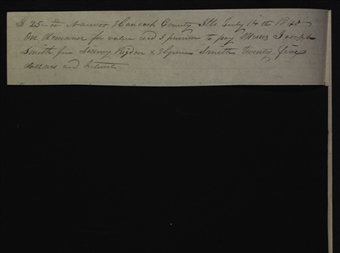 $ 25.00 Nauvoo Hancock County Ills July 14th 1840
On demand for value recd I promise to pay Messrs Joseph
Smith Jun Sidney Rigdon & Hyrum Smith twenty five
dollars and interest